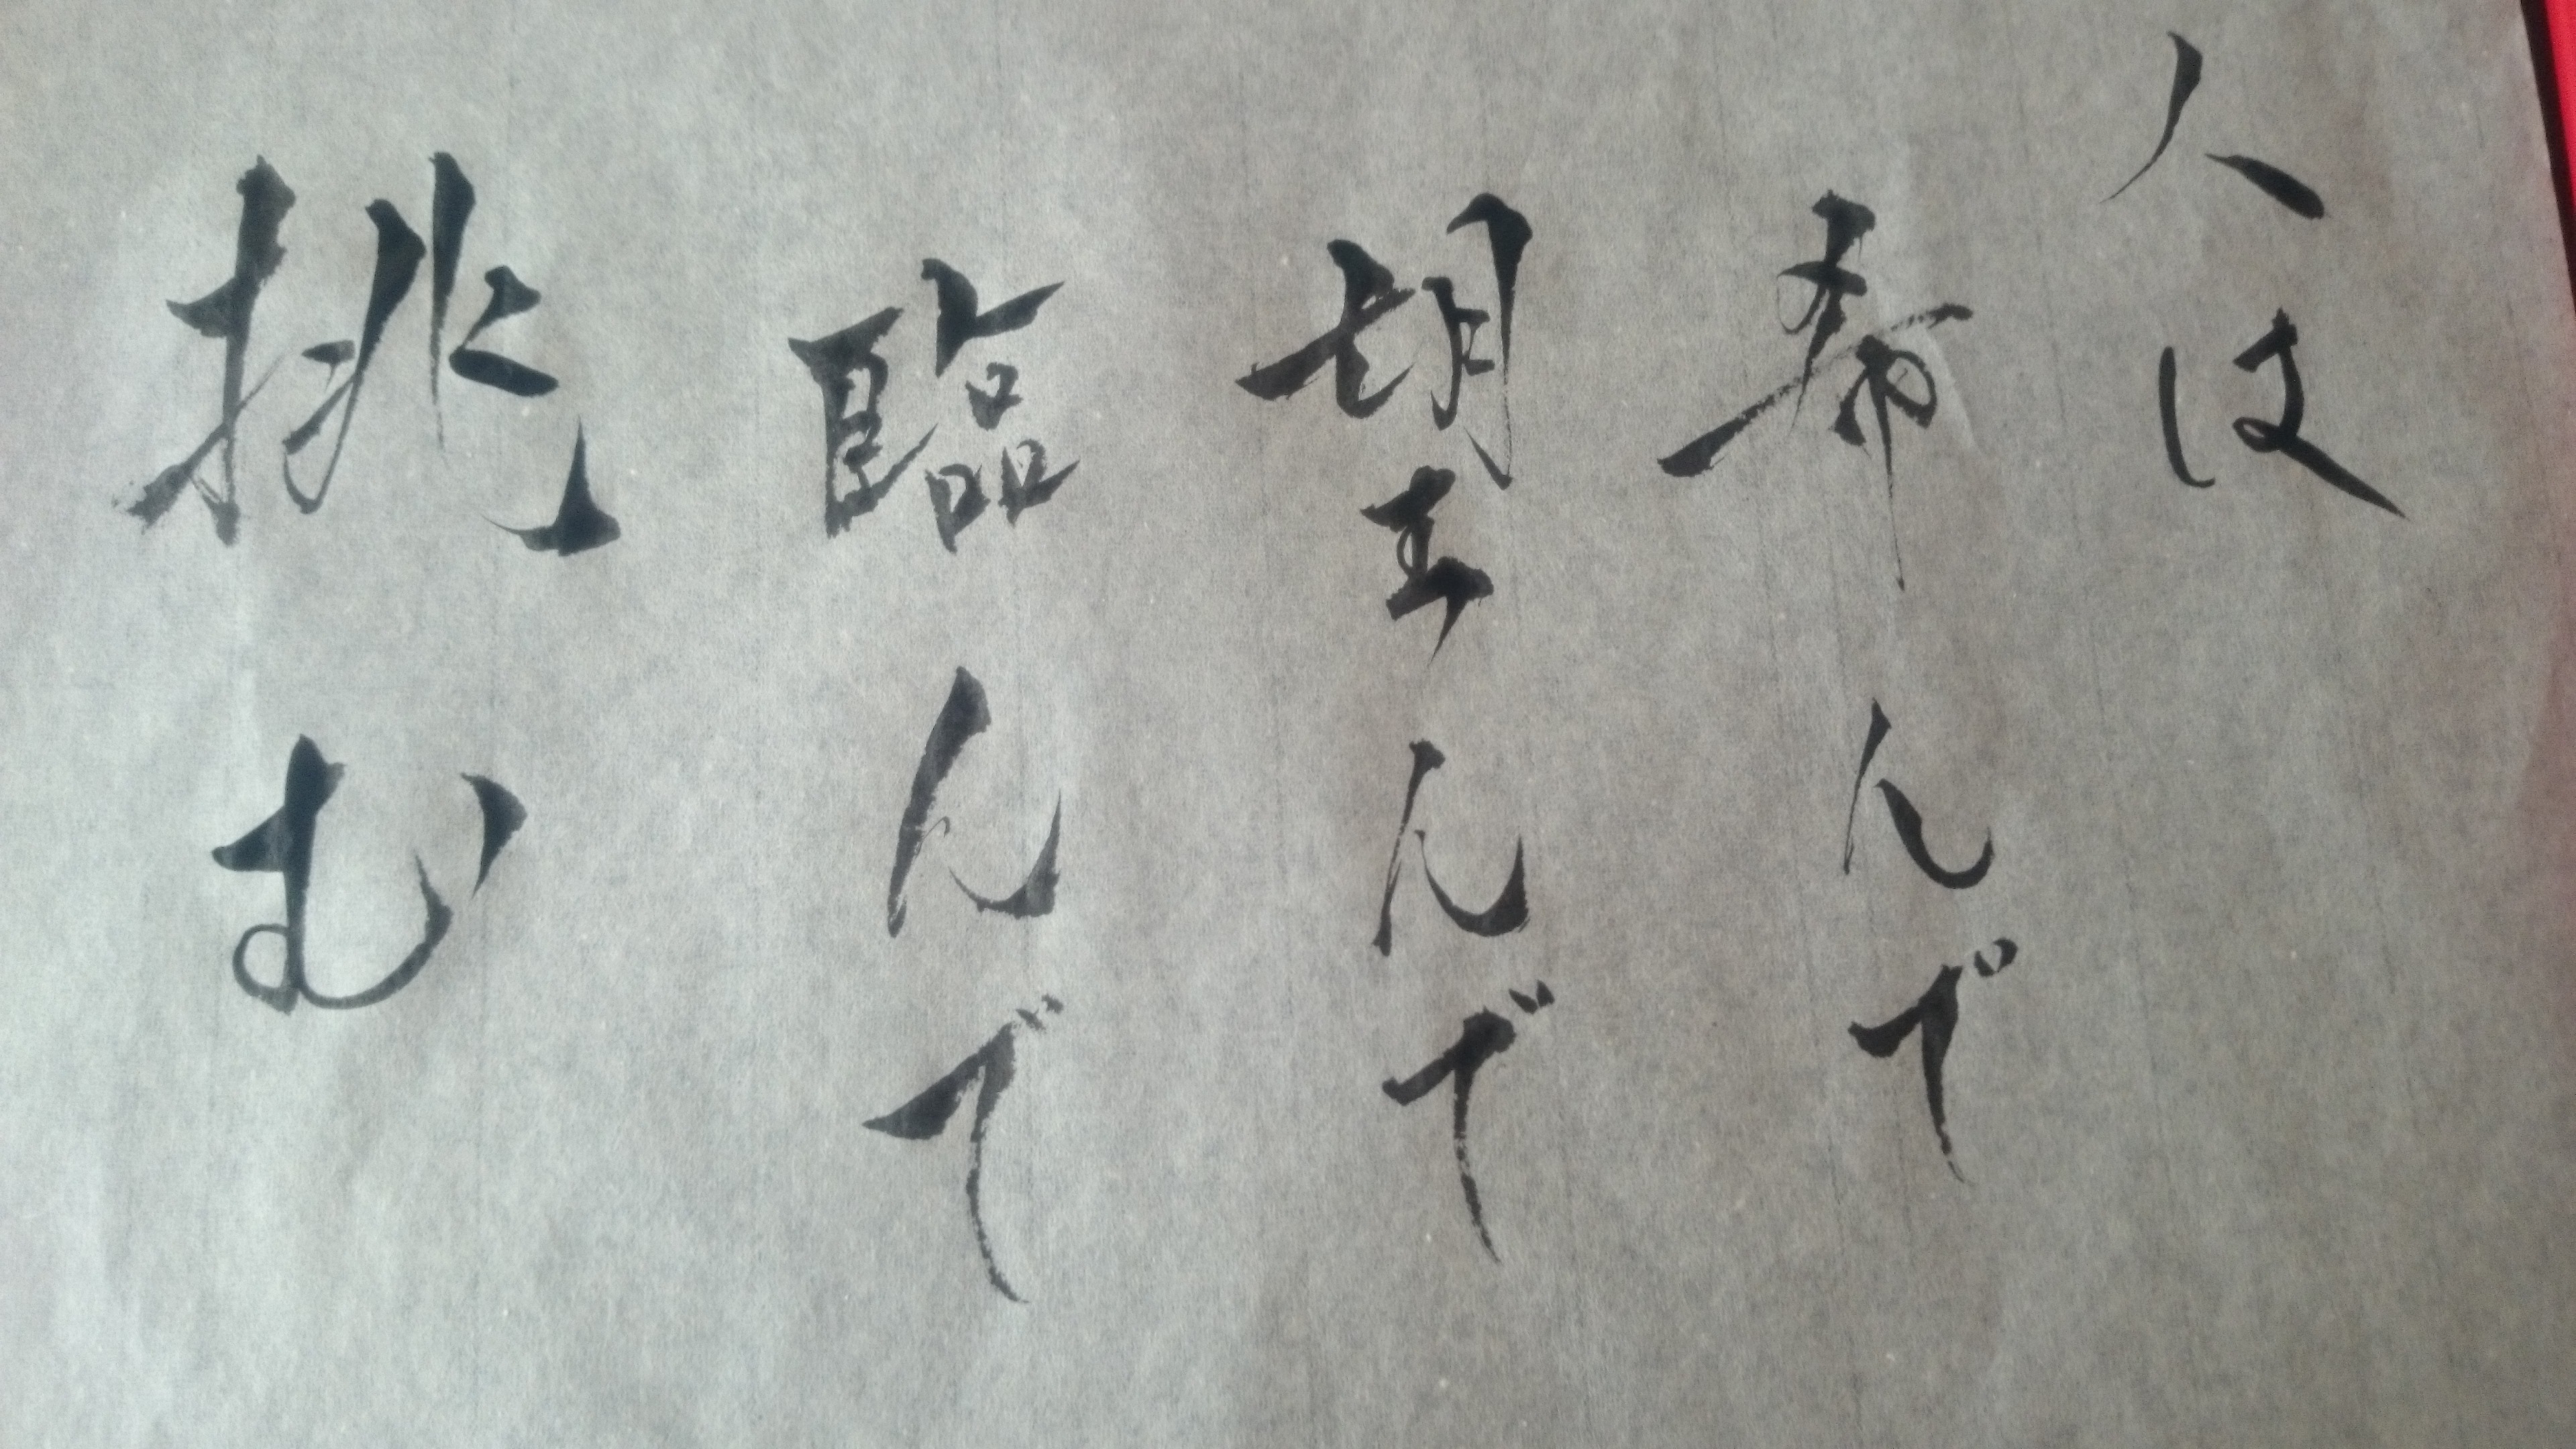 人は
希んで
望んで
臨んで
挑む